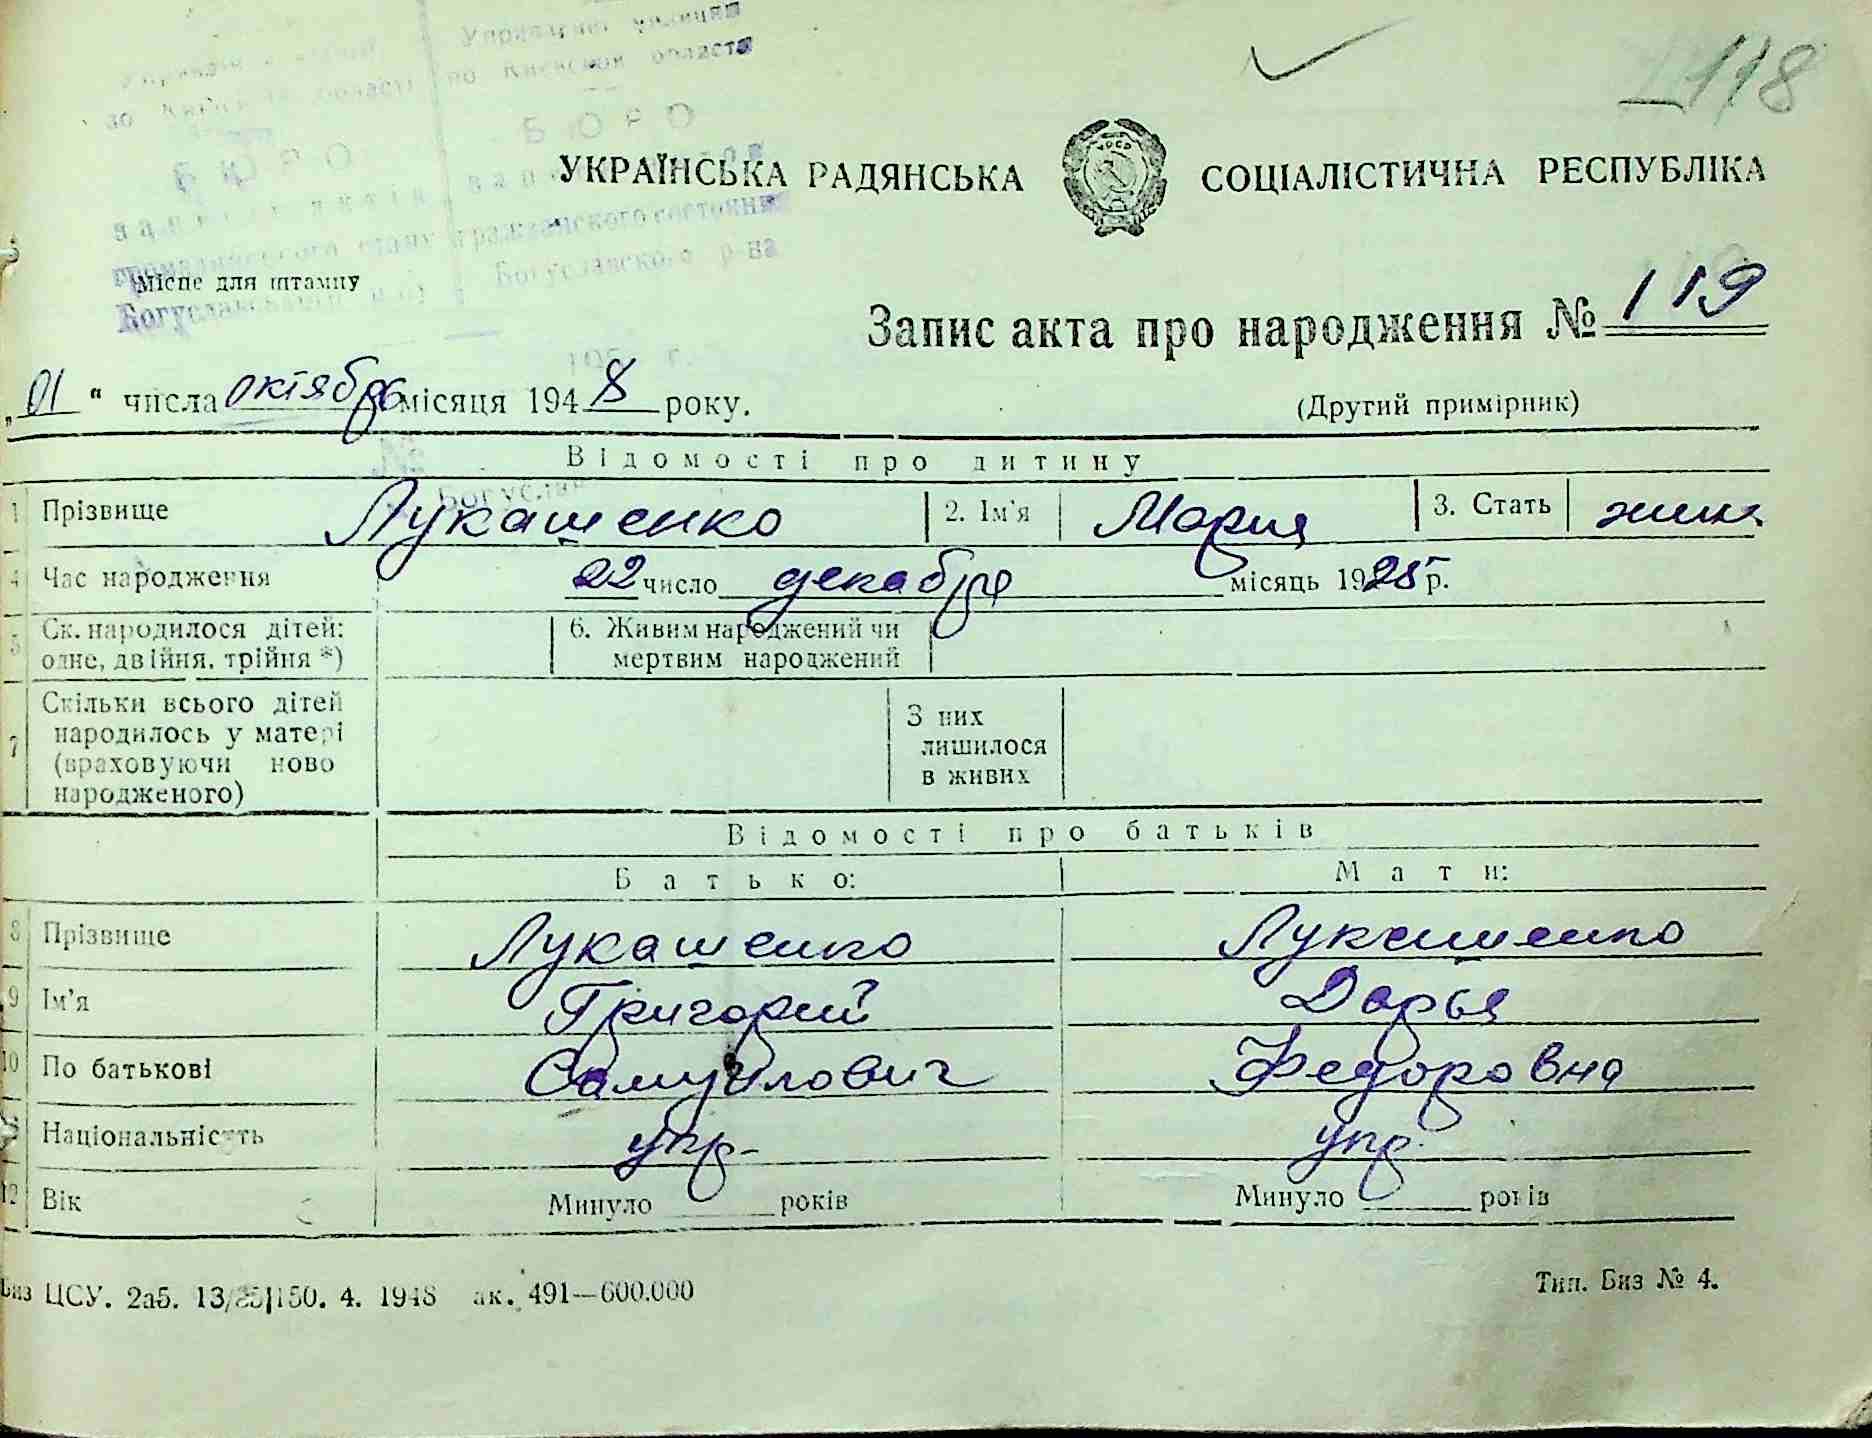 118
Управління міліції
Управление милиции
по Киевской области
БЮРО
БЮРО
УКРАЇНСЬКА РАДЯНСЬКА СОЦІАЛІСТИЧНА РЕСПУБЛІКА
громадянського стану гражданского состояния
Місце для штампу
Богуславского р-на
Запис акта про народження № 119
„01“ числа октябрь місяця 1948 року.
(Другий примірник)
Відомості про дитину
1 Прізвище Лукашенко 2. Ім'я Мария 3. Стать
4 Час народження 22 число декабря місяць 1925 р.
5 Ск. народилося дітей: 6. Живим народжений чи
одне, двійня, трійня *) мертвим народжений
7 Скільки всього дітей З них
народилось у матері лишилося
(враховуючи ново в живих
народженого)
Відомості про батьків
Батько: Мати:
8 Прізвище Лукашенко Лукашенко
9 Ім'я Григорий Дарья
10 По батькові Самуилович Федоровна
Національність укр. укр.
12 Вік Минуло років Минуло років
Биз ЦСУ. 2аб. 13/ 150. 4. 1948 ак. 491—600.000
Тип. Биз № 4.